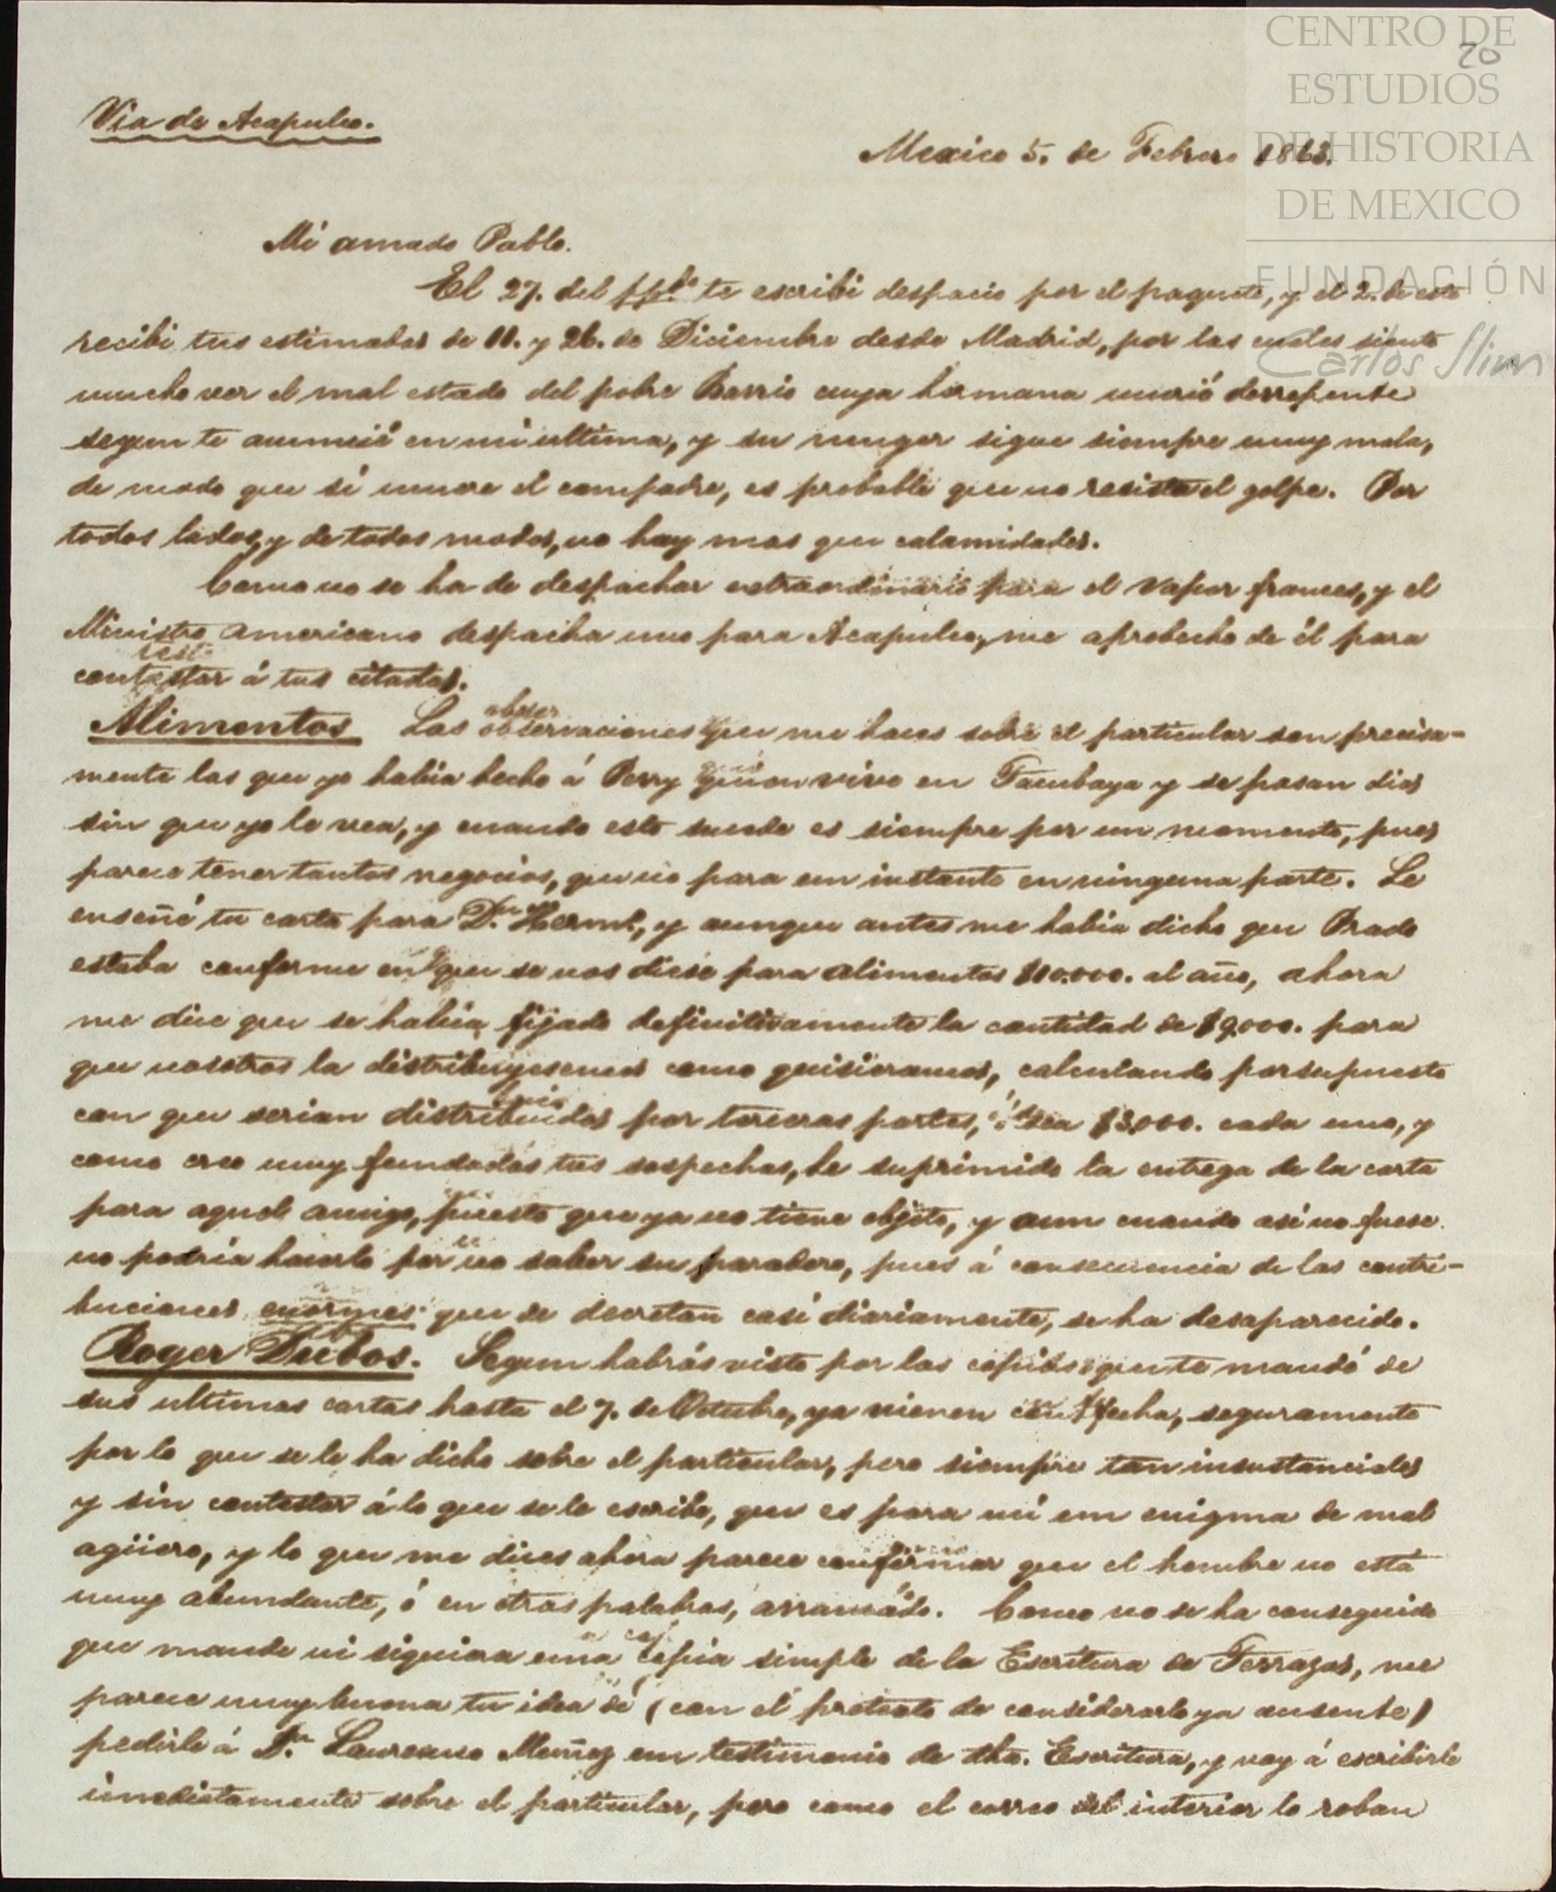 CENTRO DE
20
ESTUDIOS
DE HISTORIA
DE MEXICO
FUNDACIÓN
Carlos Slim
Via de Acapulco.
Mexico 5. de Febrero 1863.
Mi amado Pablo.
El 27. del ppdo te escribi despacio por el paquete, y el 2. de este
recibi tus estimadas de 11. y 26. de Diciembre desde Madrid, por las cuales siento
mucho ver el mal estado del pobre Barrio cuya hermana murió derrepente
segun te anuncié en mi ultima, y su muger sigue siempre muy mala,
de modo que si muere el compadre, es probable que no resista el golpe. Por
todos lados, y de todos modos, no hay mas que calamidades.
Como no se ha de despachar extraordinario para el vapor frances, y el
Ministro Americano despacha uno para Acapulco, me aprobecho de él para
contestar á tus citadas.
Alimentos Las observaciones que me haces sobre el particular son precisa-
mente las que yo habia hecho á Perry quien vive en Tacubaya y se pasan dias
sin que yo le vea, y cuando esto sucede es siempre por un momento, pues
parece tener tantos negocios, que no para un instante en ninguna parte. Le
enseñé tu carta para Dn. Herml., y aunque antes me habia dicho que Prado
estaba conforme en que se nos diese para alimentos $10.000. al año, ahora
me dice que se habia fijado definitivamente la cantidad de $9.000. para
que nosotros la distribuyesemos como quisieramos, calculando por supuesto
con que serian distribuidos por terceras partes, ó sea $3.000. cada uno, y
como creo muy fundadas tus sospechas, he suprimido la entrega de la carta
para aquel amigo, puesto que ya no tiene objeto, y aun cuando asi no fuese
no podria hacerlo por no saber su paradero, pues á consecuencia de las contri-
buciones enormes que se decretan casi diariamente, se ha desaparecido.
Roger Dubos. Segun habrás visto por las copias que te mandé de
sus ultimas cartas hasta el 7. de Octubre, ya vienen con fecha, seguramente
por lo que se le ha dicho sobre el particular, pero siempre tan insustanciales
y sin contestar á lo que se le escribe, que es para mi un enigma de mal
agüero, y lo que me dices ahora parece confirmar que el hombre no está
muy abundante, ó en otras palabras, arrancado. Como no se ha conseguido
que mande ni siquiera una copia simple de la Escritura de Terrazas, me
parece muy buena tu idea de (con el pretexto de considerarlo ya ausente)
pedirle á Dn. Laureano Muñoz un testimonio de dha. Escritura, y voy á escribirle
inmediatamente sobre el particular, pero como el correo del interior lo roban